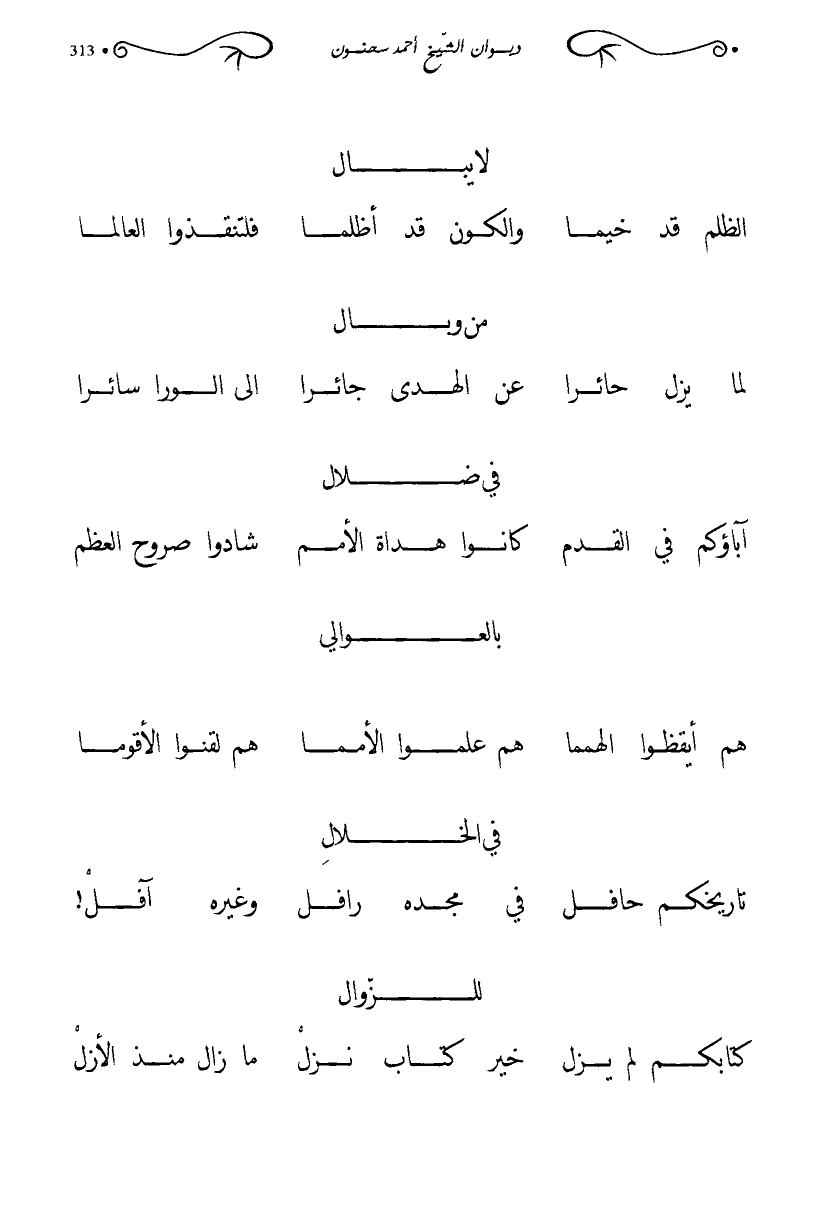 ديوان الشّيخ أحمد سحنون 313
لايبـــــــال
الظلم قد خيمـا والكـون قد أظلمـا فلتنقـذوا العالمـا
من وبـــــــال
لما يزل حائـرا عن الهـدى جائـرا الى الـورا سائـرا
في ضـــــــلال
آباؤكم في القـدم كانـوا هـداة الأمـم شادوا صروح العظم
بالعـــــــوالي
هم أيقظـوا الهمما هم علمـوا الأممـا هم لقنـوا الأقومـا
في الخـــــــلالِ
تاريخكـم حافـل في مجـده رافـل وغيره آفـلْ!
للـــــــزّوال
كتابكـم لم يـزل خير كتـاب نـزلْ ما زال منـذ الأزلْ